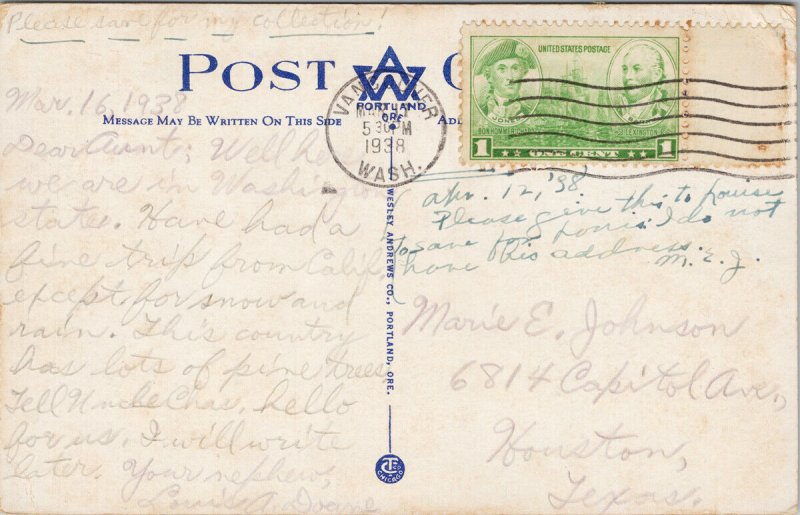 Please save for my collection!
POST
PORTLAND
ORE.
MESSAGE MAY BE WRITTEN ON THIS SIDE
AD
Mar. 16, 1938
Dear Aunt: Well he
we are in Wash
state. Have had a
fine trip from Calif
except for snow and
rain. This country
has lots of pine trees
Tell Uncle Chas. hello
for us. I will write
later. Your nephew,
Louis A. Doane
WESLEY ANDREWS CO., PORTLAND, ORE.
CHICAGO
VANCOUVER
5 30 PM
1938
WASH.
UNITED STATES POSTAGE
JONES
BON HOMME
LEXINGTON
1 ONE CENT 1
Apr. 12, '38.
Please give this to Louise
to save for Louis. I do not
have his address.
M. E. J.
Marie E. Johnson
6814 Capitol Ave.,
Houston,
Texas.